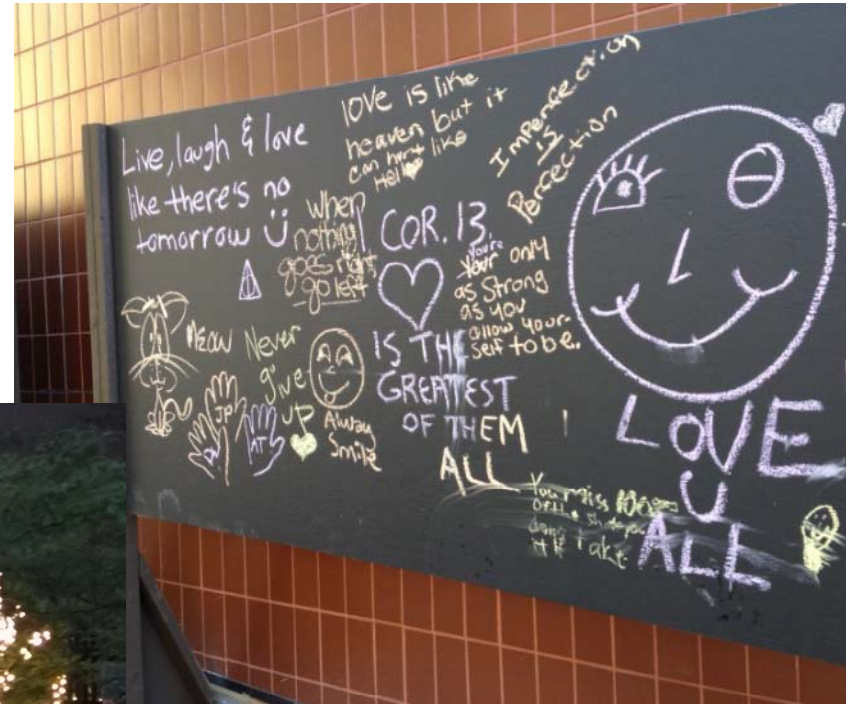 Live, laugh & love
like there's no
tomorrow
love is like
heaven but it
can hurt like
Hell
Imperfection
is
Perfection
when
nothing
goes right,
go left
1 COR. 13.
IS THE
GREATEST
OF THEM
ALL
you're
Your only
as Strong
as you
allow your-
self to be.
MEOW
Never
give
up
Alway
Smile
JP
AT
LOVE
U
ALL
You miss
take